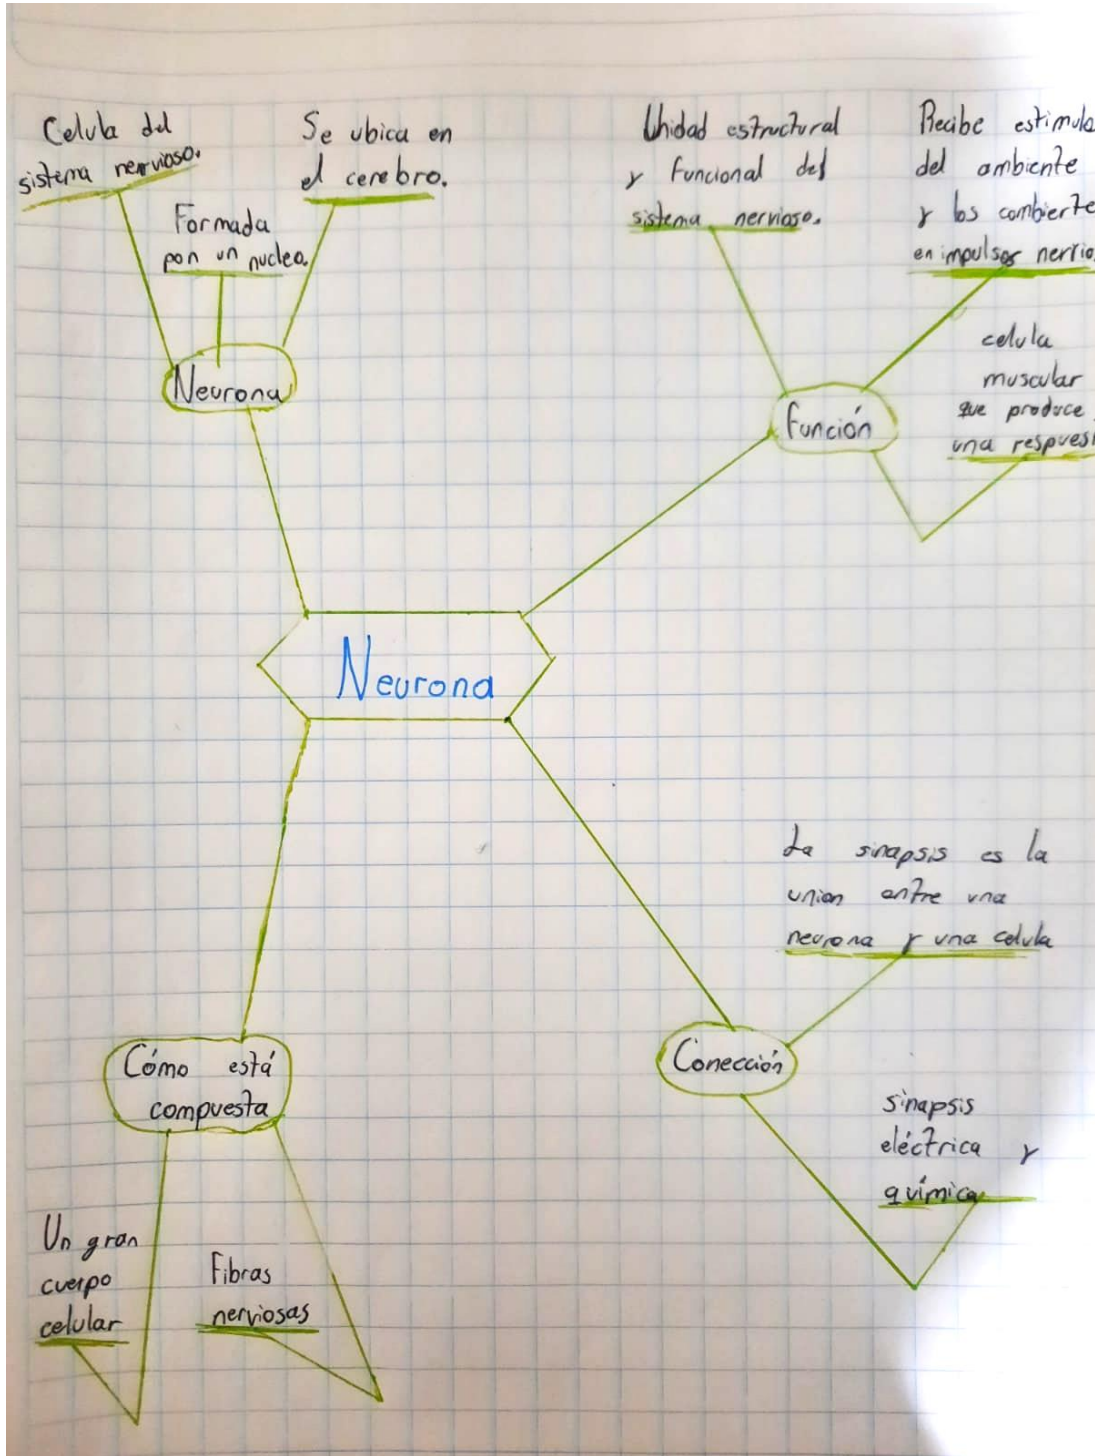 Celula del
sistema nervioso.
Formada
por un nucleo.
Se ubica en
el cerebro.
Neurona
Unidad estructural
y funcional del
sistema nervioso.
Recibe estimulo
del ambiente
y los combierte
en impulsos nervio
celula
muscular
que produce
una respues
Función
Neurona
La sinapsis es la
union entre una
neurona y una celula
Conección
sinapsis
eléctrica y
química
Cómo está
compuesta
Un gran
cuerpo
celular
Fibras
nerviosas